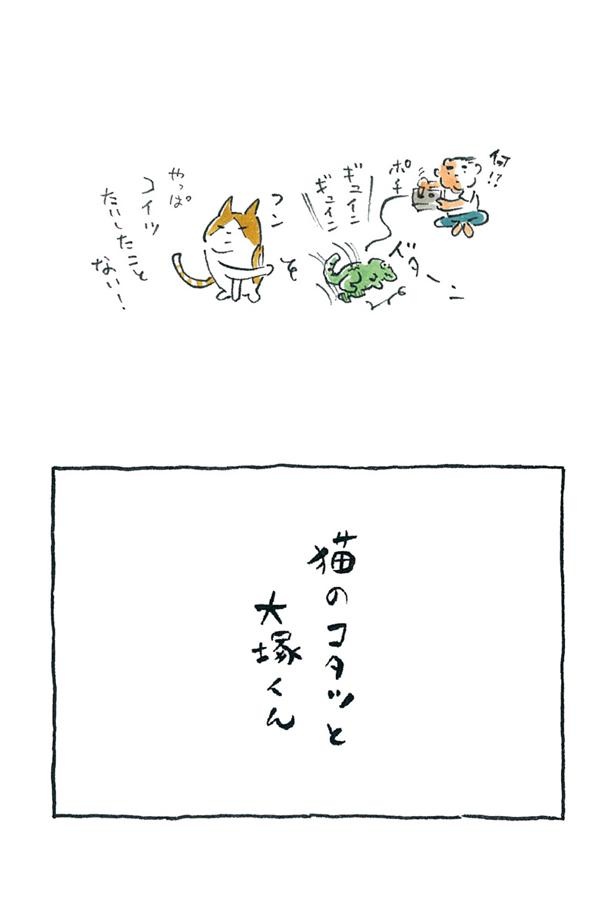 何!?
ポチ
バターン
ギュイン
ギュイン
フン
そ
やっぱ
コイツ
たいしたこと
ない!
猫のコタツと
大塚くん